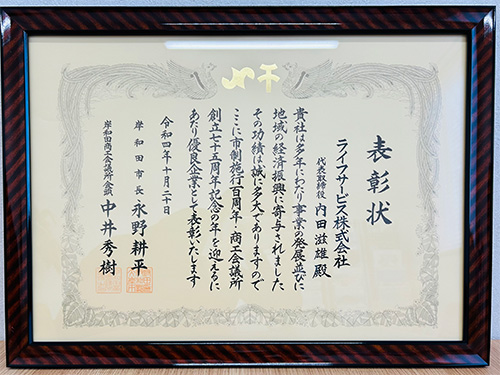 表彰状
ライフサービス株式会社
代表取締役 内田滋雄殿
貴社は多年にわたり事業の発展並びに
地域の経済振興に寄与されました
その功績は誠に多大でありますので
ここに市制施行百周年・商工会議所
創立七十五周年記念の年を迎えるに
あたり優良企業として表彰いたします
令和四年十月二十日
岸和田市長 永野耕平
岸和田商工会議所会頭 中井秀樹